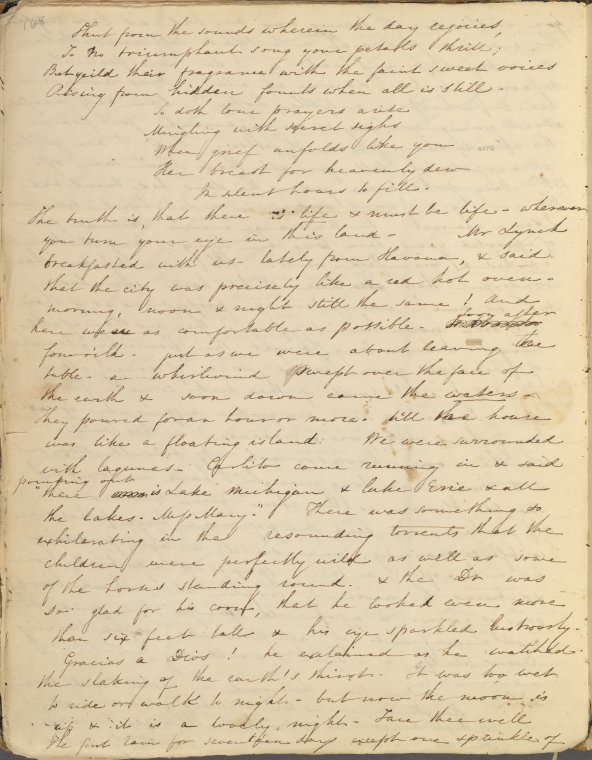 168
Shut from the sounds wherein the day rejoices,
To no triumphant song your petals thrill;
But yield their fragrance with the faint sweet voices
Arising from hidden founts when all is still -
So doth lone prayers arise
Mingling with secret sighs
When grief unfolds like you
Her breast for heavenly dew
In silent hours to fill.
The truth is, that there is life & must be life - wherever
you turn your eye in this land - Mr Lynch
breakfasted with us - lately from Havana, & said
that the city was precisely like a red hot oven -
morning, noon & night still the same! And
here we as comfortable as possible -
soon after
four o'clk - just as we were about leaving the
table - a whirlwind swept over the face of
the earth & soon down came the waters -
They poured for an hour or more - till the house
was like a floating island. We were surrounded
with lagunas - Carlito came running in & said
pointing out
"there is Lake Michigan & lake Erie & all
the lakes - Miss Mary." There was something so
exhilarating in the resounding torrents that the
children were perfectly wild as well as some
of the horses standing round - & the Dr was
so glad for his corn, that he looked even more
than six feet tall & his eye sparkled lustrously -
Gracias a Dios! he exclaimed as he watched -
the slaking of the earth's thirst - It was too wet
to ride or walk to night - but now the moon is
up & it is a lovely night - Fare thee well
The first rain for seventeen days except one sprinkle of